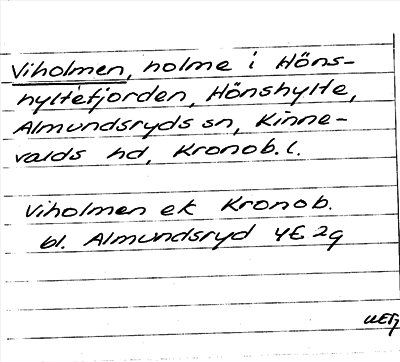 Viholmen, holme i Höns-
hyltefjorden, Hönshylte,
Almundsryds sn, Kinne-
valds hd, Kronob. l.
Viholmen ek Kronob.
bl. Almundsryd 4E 2g